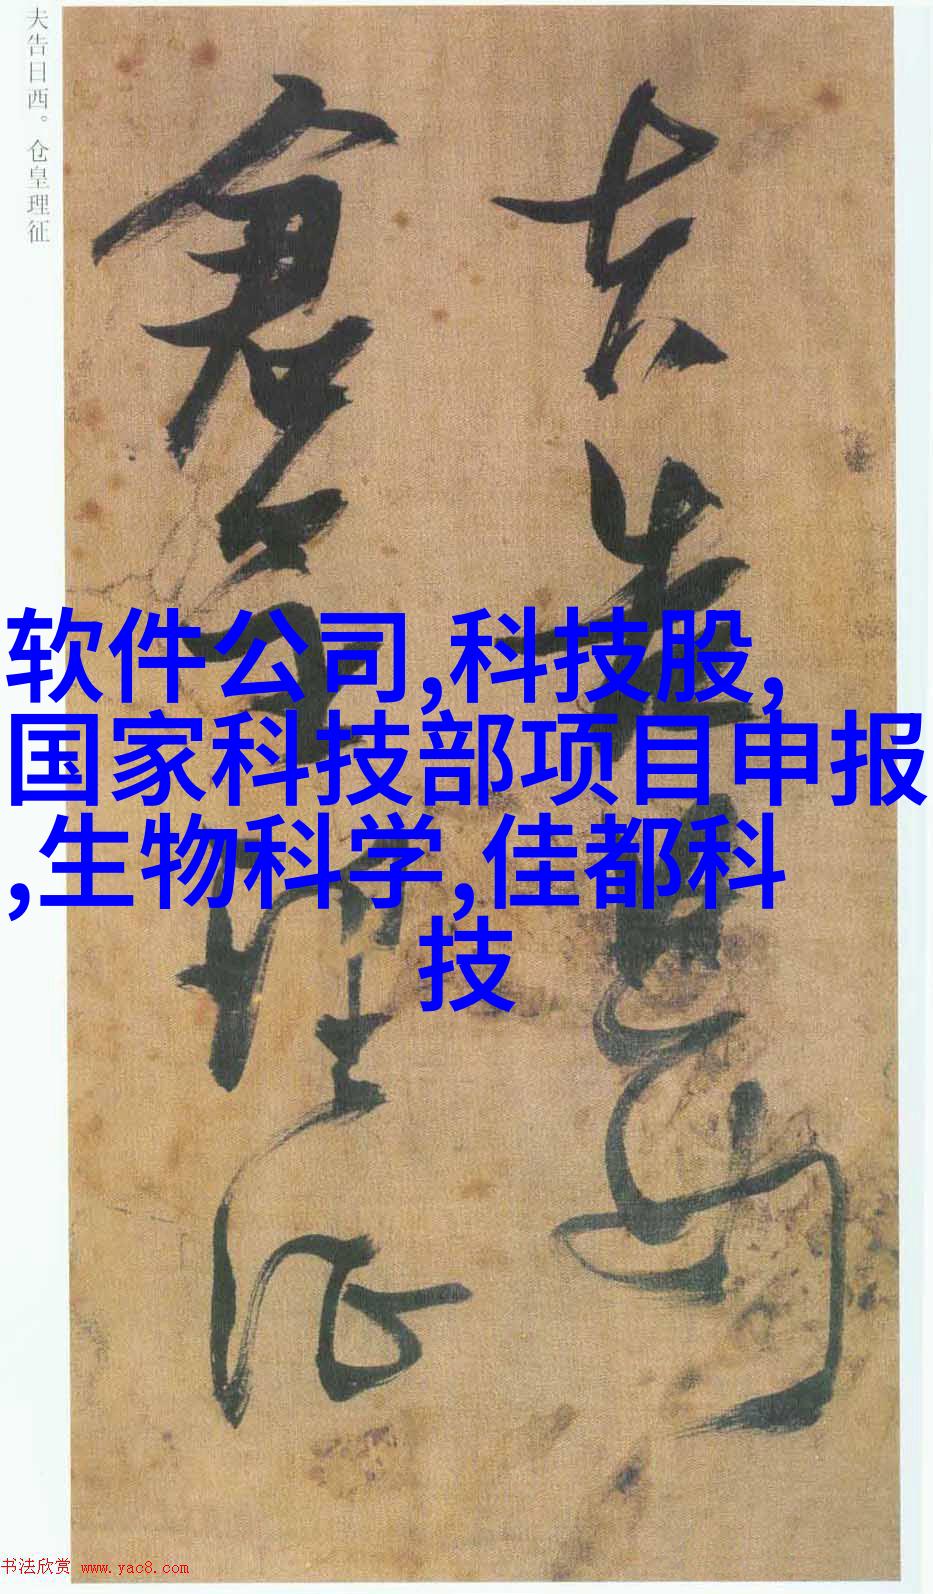 夫告日西。仓皇理征
夫告日西
仓皇理征
软件公司,科技股,
国家科技部项目申报
,生物科学,佳都科
技
书法欣赏 www.yac8.com